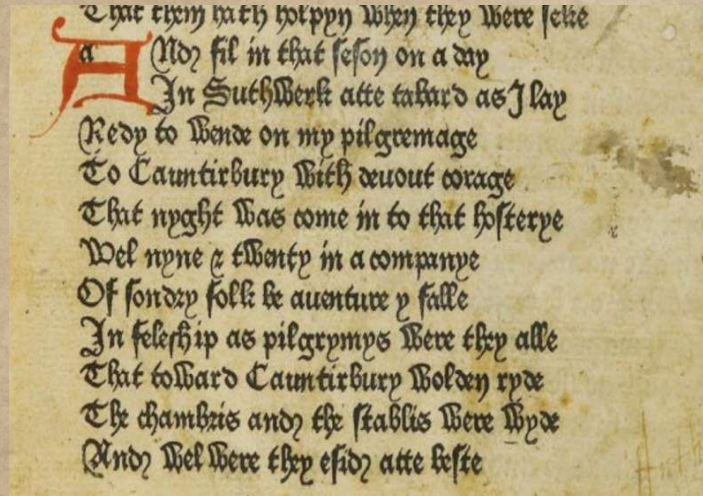 That them hath holpyn when they were seke
ANd fil in that seson on a day
In Suthwerk atte tabard as I lay
Redy to wende on my pilgremage
To Cauntirbury with deuout corage
That nyght was come in to that hosterye
Wel nyne & twenty in a companye
Of sondry folk be auenture y falle
In feleship as pilgrymys were they alle
That toward Cauntirbury wolden ryde
The chambris and the stablis were wyde
And wel were they esid atte beste